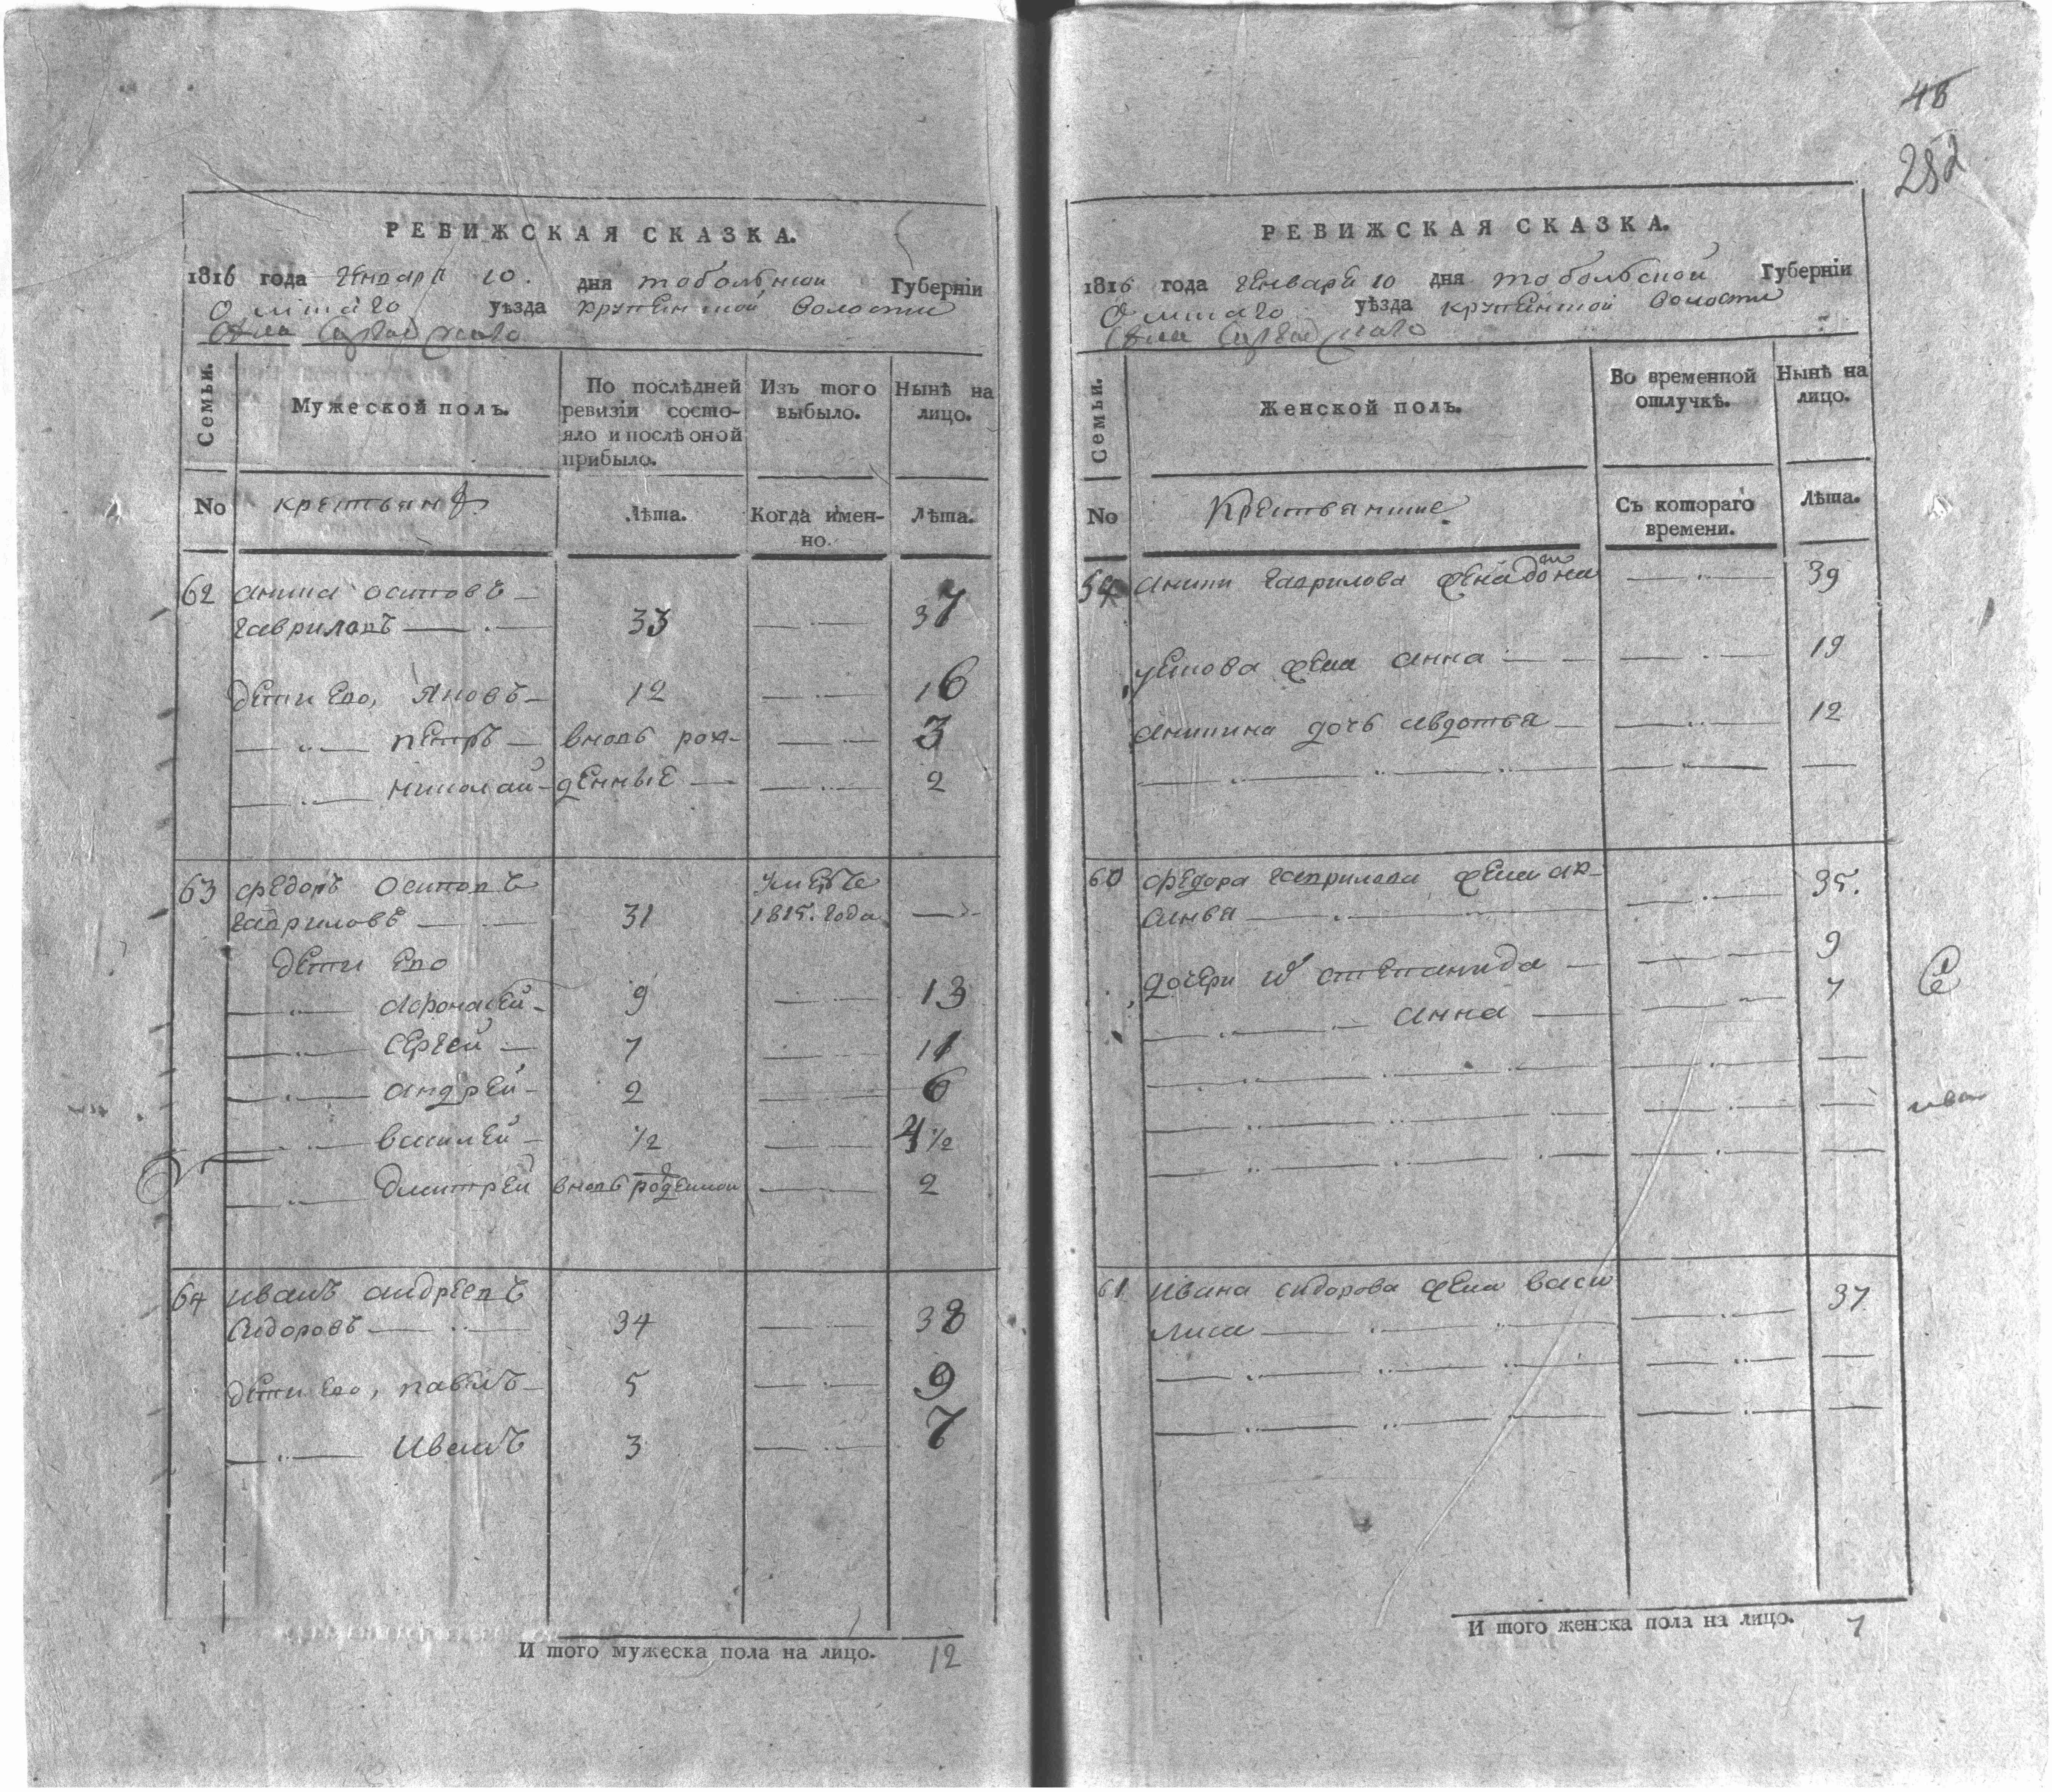 48
252
РЕВИЖСКАЯ СКАЗКА.
1816 года Генваря 10. дня тобольской Губернїи
Омшаго уѣзда крупенской волости
Села
Семьи.
Мужеской полъ.
По послѣдней ревизїи состояло и послѣ оной прибыло.
Изъ того выбыло.
Нынѣ на лицо.
No
крестьянъ
Лѣта.
Когда именно.
Лѣта.
62 аника осиповъ —
гавриловъ — 33 — 37
дети Ево, Яковъ — 12 — 16
— петръ — вновь рож- — 3
— николай — денные — 2
63 федоръ осиповъ умеръ
гавриловъ — 31 1815. года —
дети Ево
— Афонасей — 9 — 13
— Сергей — 7 — 11
— андрей — 2 — 6
— василей — ½ — 4½
— дмитрей вновь — 2
64 иванъ андреевъ
Сидоровъ — 34 — 38
дети Ево, павелъ — 5 — 9
— Иванъ 3 — 7
И того мужеска пола на лицо. 12
РЕВИЖСКАЯ СКАЗКА.
1816 года Генваря 10 дня тобольской Губернїи
Омшаго уѣзда крупенской волости
Села
Семьи.
Женской полъ.
Во временной отлучкѣ.
Нынѣ на лицо.
No
Крестьянские
Съ котораго времени.
Лѣта.
59 аники гаврилова жена — 39
жена анна — 19
аникина дочь авдотья — 12
60 федора гаврилова жена ак- — 35.
синья —
дочери 1й степанида — 9
— анна — 7
61 ивана сидорова жена васи — 37
лиса —
И того женска пола на лицо. 7